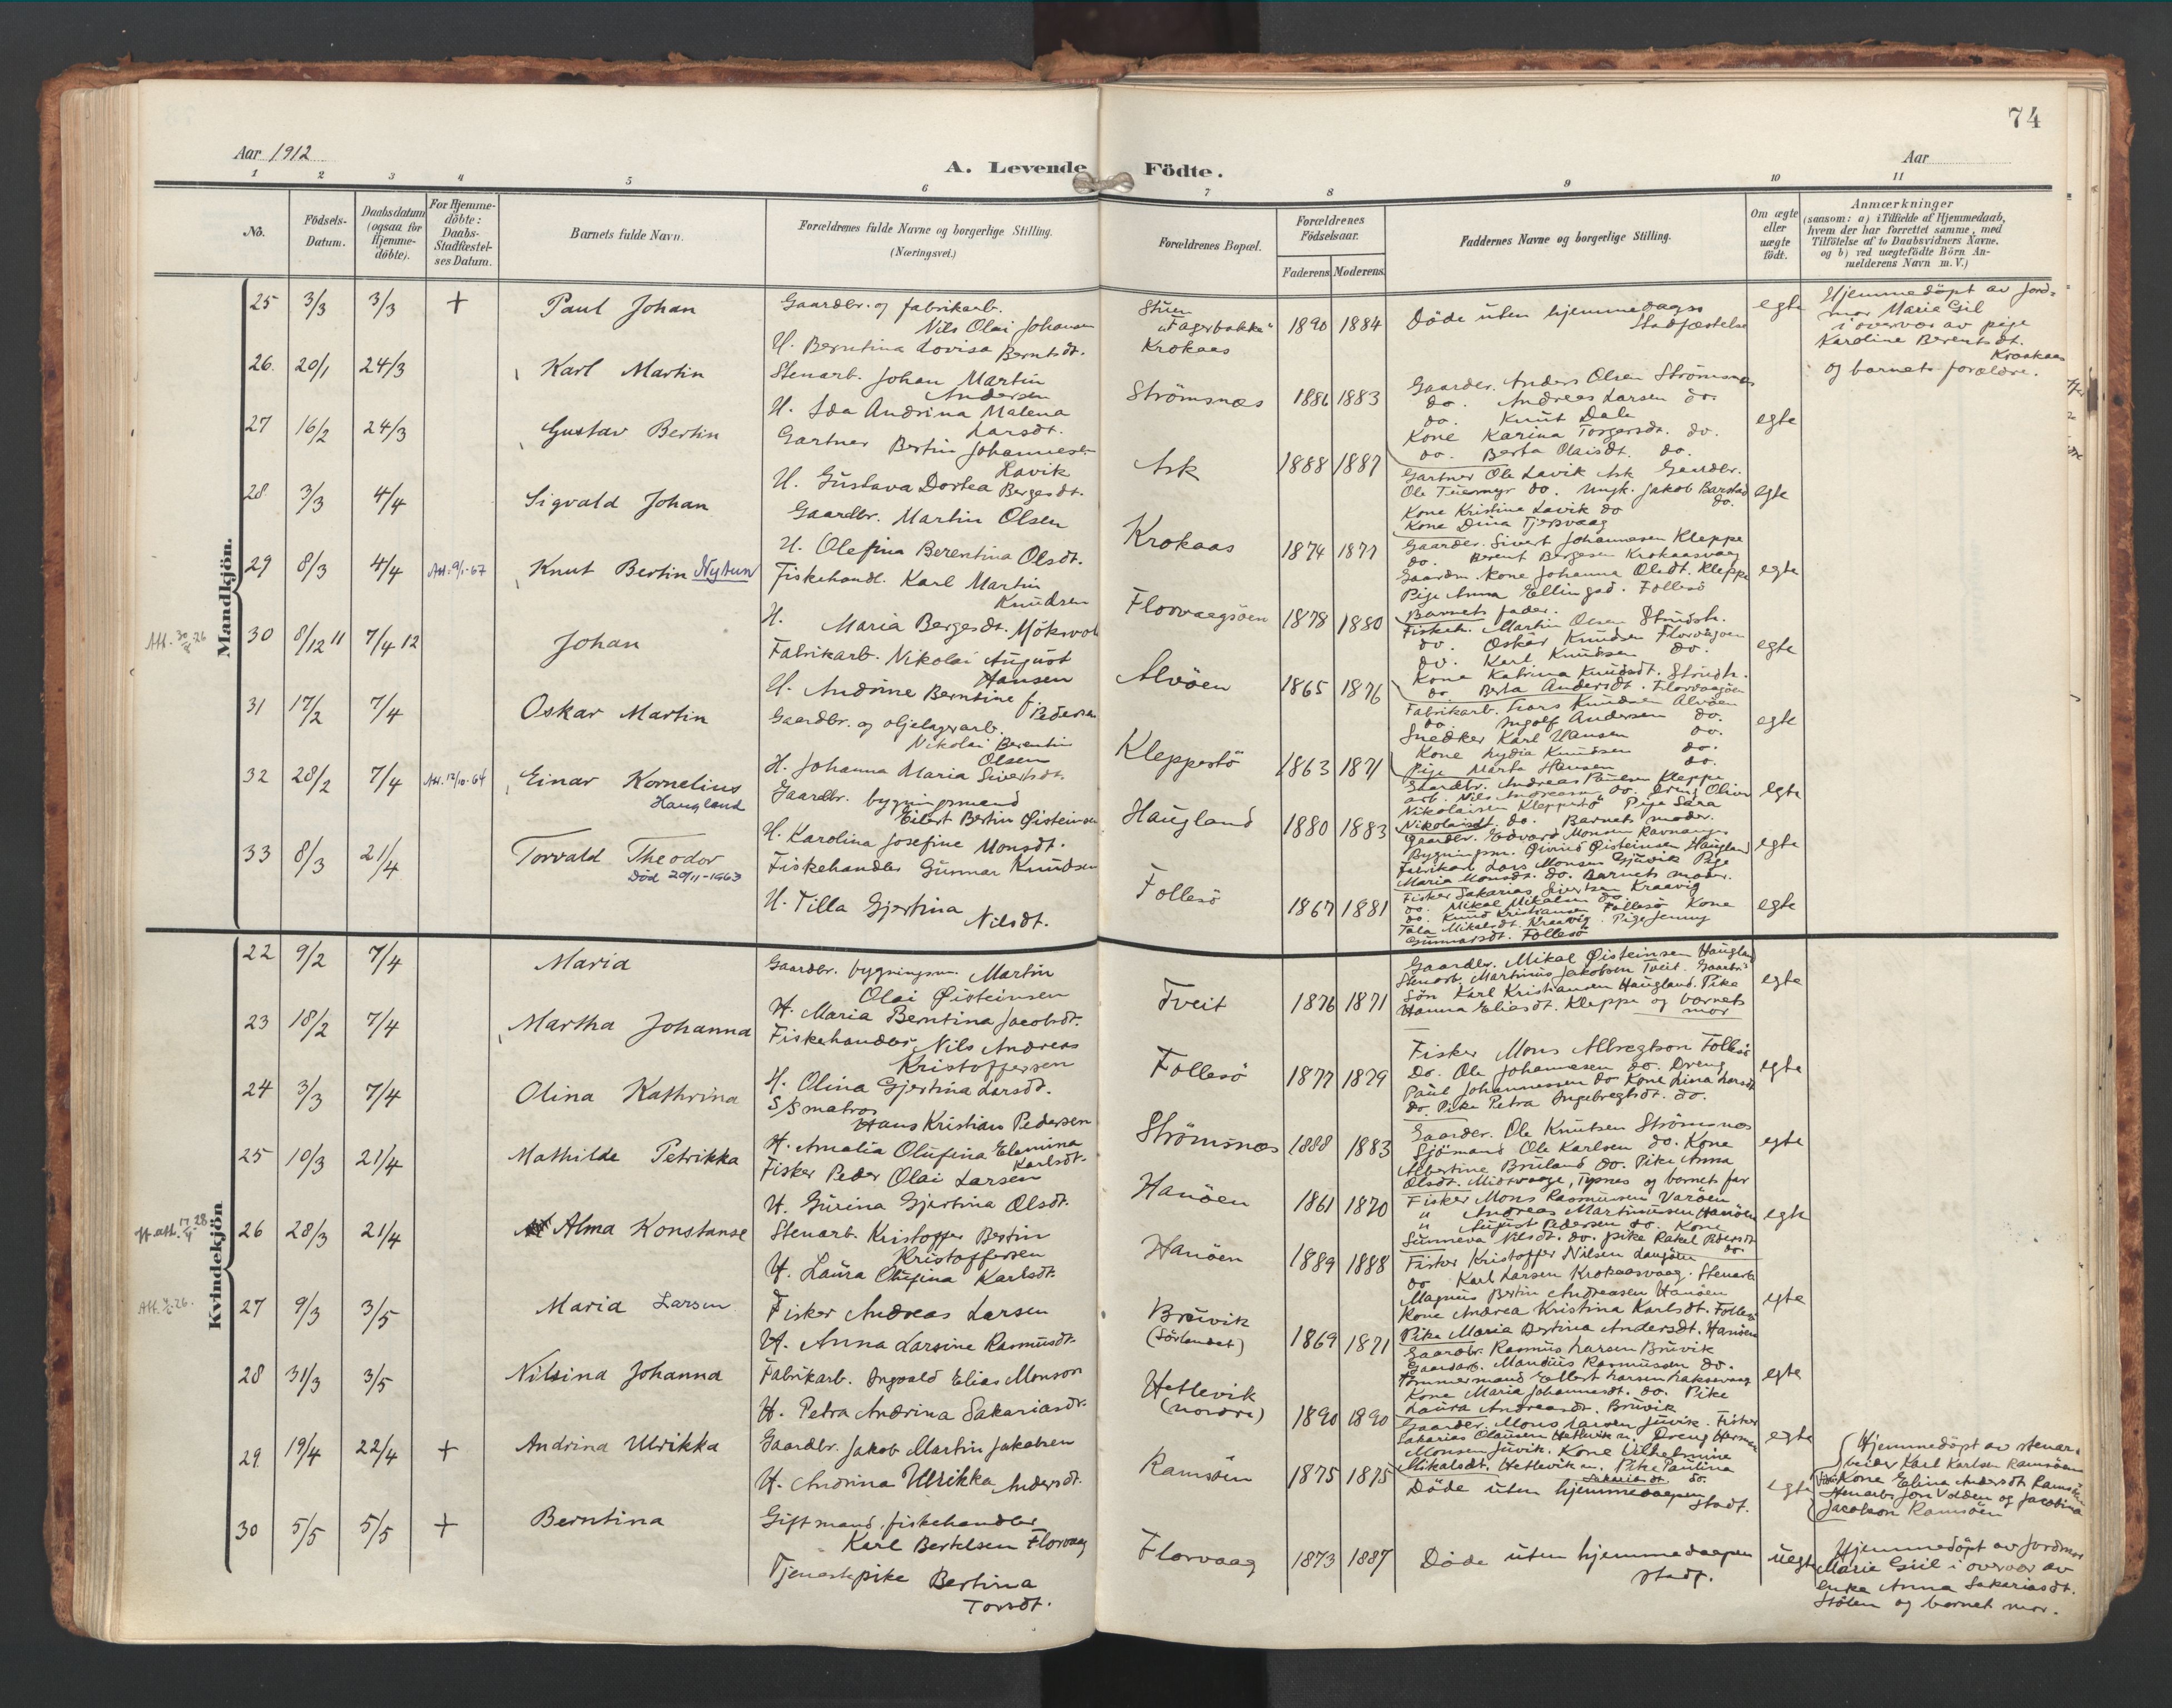 74
Aar 1912
A. Levende Födte.
Aar
1 2 3 4 5 6 7 8 9 10 11
No.
Födsels-Datum.
Daabsdatum (ogsaa for Hjemme-döbte).
For Hjemme-döbte: Daabs-Stadfæstel-ses Datum.
Barnets fulde Navn.
Forældrenes fulde Navne og borgerlige Stilling. (Næringsvei.)
Forældrenes Bopæl.
Forældrenes Födselsaar.
Faderens Moderens
Faddernes Navne og borgerlige Stilling.
Om ægte eller uægte födt.
Anmærkninger
(saasom: a) i Tilfælde af Hjemmedaab,
hvem der har forrettet samme, med
Tilföielse af to Daabsvidners Navne.
og b) ved uægtefödte Börn An-
melderens Navn m. V.)
Mandkjön.
25 3/3 3/3 + Paul Johan
Gaardbr. og fabrikarb.
Nils Olai Johansen
H. Berntina Lovisa Berntsdt.
Stuen
"Fagerbakke"
Krokaas
1890 1884
Döde uten hjemmedaaps
Stadfæstelse
egte
Hjemmedöpt av jord-
mor Marie Giil
i overvær av pige
Karoline Berentsdt.
Krokaas
og barnets forældre.
26. 20/1 24/3 Karl Martin
Stenarb. Johan Martin
Andersen
H. Ida Andrina Malena
Larsdt.
Strömsnæs
1886 1883
Gaardbr. Anders Olsen Strömsnæs
do. Andreas Larsen do.
do. Knut Dale
Kone Karina Torgersdt. do.
do. Berta Olaisdt. do.
egte
27 16/2 24/3 Gustav Bertin
Gartner Bertin Johannesen
Lavik
H. Gustava Dortea Bergesdt.
Ask
1888 1887
Gartner Ole Lavik Ask Gaardbr.
Ole do. Ungk. Jakob Barstad
do.
Kone Kristina Lavik do
Kone Dina
egte
28 3/3 4/4 Sigvald Johan
Gaardbr. Martin Olsen
H. Olefina Berentina Olsdt.
Krokaas
1874 1877
Gaardbr. Sivert Johannesen Kleppe
do. Berent Bergesen Krokaasvaag
Kone Johanna Olsdt. Kleppe
Pige Anna Follesö
egte
29 8/3 4/4 Att. 9/1-67 Knut Bertin Nytun
Fiskehandl. Karl Martin
Knudsen
H. Maria Bergesdt.
Florvaagöen
1878 1880
Barnets fader.
Fiskeh. Martin Olsen
do. Oskar Knudsen Florvaagöen
do. Karl Knudsen do.
Kone Katrina Knudsdt.
do. Berta Andersdt. Florvaagöen
egte
Att. 30/ 26
30 8/12 11 7/4 12 Johan
Fabrikarb. Nikolai August
Hansen
H. Andrine Berntine f.
Pedersen
Alvöen
1865 1876
Fabrikarb. Lars Knudsen Alvöen
do. Ingolf Andersen do.
Snedker Karl Hansen do.
Kone Lydia Knudsen do.
Pige Marta Hansen do.
egte
31 17/2 7/4 Oskar Martin
Gaardbr. og oljelagerarb.
Nikolai Berentin
Olsen
H. Johanna Maria Sivertsdt.
Kleppestö
1863 1871
Gaardbr. Andreas Paulsen Kleppe
arb. Nils Andreasen do. Dreng Oliver
Nikolaisen Kleppestö Pige Sara
Nikolaisdt. do. Barnets moder.
egte
32 28/2 7/4 Att. 12/10-64 Einar Kornelius
Haugland
Gaardbr. bygningsmand
Eilert Bertin Øisteinsen
H. Karolina Josefine Monsdt.
Haugland
1880 1883
Gaardbr. Edvard Monsen Ravnanger
Bygningsm. Øisteinsen Haugland
Fabrikarb. Lars Monsen Gjuvik Pige
Maria Monsdt. do. Barnets moder.
egte
33 8/3 21/4 Torvald Theodor
Död 20/11-1963
Fiskehandler Gunnar Knudsen
H. Tilla Gjertina
Nilsdt.
Follesö
1867 1881
Fisker Sakarias Sivertsen Kraavig
do. Mikal Mikalsen do.
do. Knud Kristiansen Follesö Kone
Tala Mikalsdt. Kraavig. Pige Jenny
Gunnarsdt. Follesö
egte
Kvindekjön
22 9/2 7/4 Maria
Gaardbr. bygningsm. Martin
Olai Øisteinsen
H. Maria Berntina Jacobsdt.
Tveit
1876 1871
Gaardbr. Mikal Øisteinsen Haugland
Stenarb. Martinus Jakobsen Tveit. Gaardbr.
Sön Karl Kristiansen Haugland. Pike
Hanna Eliasdt. Kleppe og barnets
mor
egte
23 18/2 7/4 Martha Johanna
Fiskehandler Nils Andreas
Kristoffersen
H. Olina Gjertina Larsdt.
Follesö
1877 1879
Fisker Mons Albregtson Follesö
Do. Ole Johannesen do. Dreng
Paul Johannessen do Kone Lina Larsdt
do. Pike Petra Ingebregtsdt. do.
egte
24 3/3 7/4 Olina Kathrina
S/S matros
Hans Kristian Pedersen
H. Amalia Olufina Elenina
Karlsdt.
Strömsnæs
1888 1883
Gaardbr. Ole Knutsen Strömsnæs
Sjömand Ole Karlsen do. Kone
Albertine Bruland do. Pike Anna
Olsdt. Midtvaage, Tysnes og barnets far
egte
25 10/3 21/4 Mathilde Petrikka
Fisker Peder Olai Larsen
H. Gurina Gjertina Olsdt.
Hanöen
1861 1870
Fisker Mons Rasmussen Varöen
" Andreas Martinusen Hanöen
" August Pedersen do. Kone
Sunneva Nilsdt. do. pike Rakel Pedersdt
do.
egte
28
26 28/3 21/4 Alma Konstanse
Stenarb. Kristoffer Bertin
Kristoffersen
H. Laura Olufina Karlsdt.
Hanöen
1889 1888
Fisker Kristoffer Nilsen
do Karl Larsen Krokaasvaag. Stenarb
Magnus Bertin Andreasen Hanöen
Kone Andrea Kristina Karlsdt. Follesö
Pike Maria Bertina Andersdt. Hanöen
egte
Att. 26.
27 9/3 3/5 Maria Larsen
Fisker Andreas Larsen
H. Anna Larsine Rasmusdt.
Bruvik
(Sörlandet)
1869 1871
Gaardbr. Rasmus Larsen Bruvik
Gaardarb. Mandius Rasmussen do.
Tömmermand Ellert Larsen
Kone Maria Johannesdt. do. Pike
Laura Andreasdt. Bruvik
egte
28 31/3 3/5 Nilsina Johanna
Fabrikarb. Ingvald Elias Monson
H. Petra Andrina Sakariasdt.
Hetlevik
(nordre)
1890 1890
Gaardbr. Mons Larsen Juvik. Fisker
Sakarias Olausen Hetlevik n. Dreng Herman
Monsen Juvik. Kone Vilhelmine
Mikalsdt. Hetlevik n. Pike Paulina
Sakariasdt. do.
egte
29 19/4 22/4 + Andrina Ulrikka
Gaardbr. Jakob Martin Jakobsen
H. Andrina Ulrikka Andersdt.
Ramsöen
1875 1875
Döde uten hjemmedaapen
Stadf.
egte
Hjemmedöpt av stenar-
beider Karl Karlsen Ramsöen
Kone Elina Andersdt Ramsöen
Stenarb. Jon Volden og Jacobina
Jacobson Ramsöen
30 5/5 5/5 + Berntina
Gift mand, fiskehandler
Karl Bertelsen Florvaag
Tjenestepike Bertina
Torsdt.
Florvaag
1873 1887
Döde uten hjemmedaapen
stadf.
uegte
Hjemmedöpt av jordmor
Marie Giil i overvær av
enke Anna Sakariasdt.
Stölen og barnets mor.